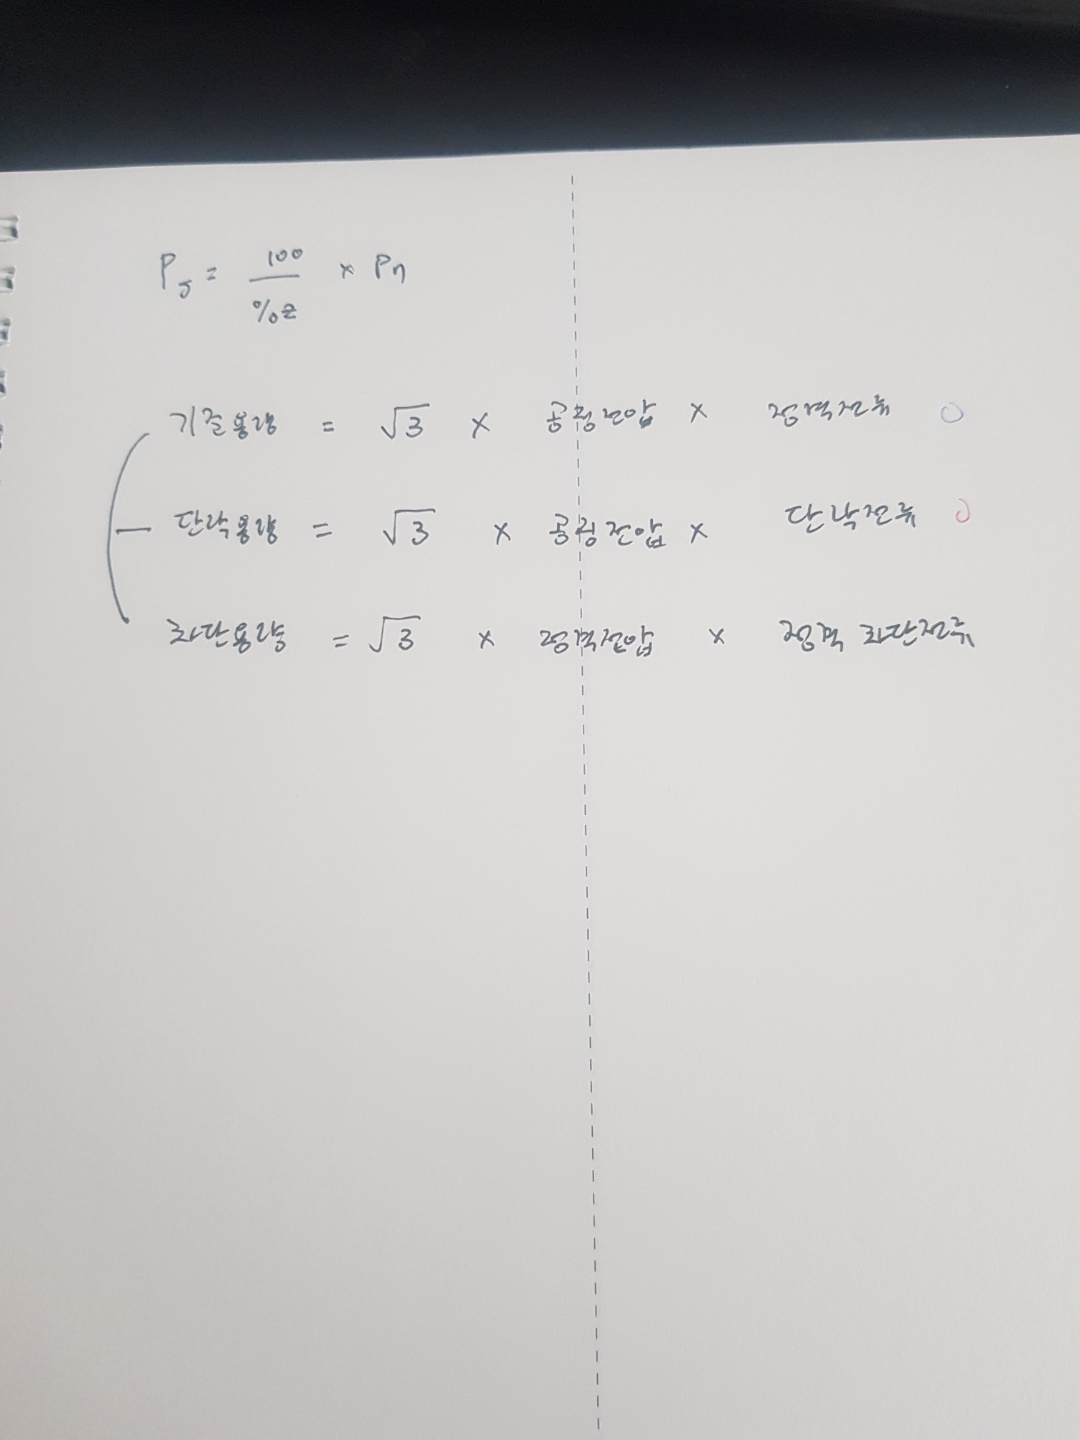 Ps = 100/%z × Pn
기준용량 = √3 × 공칭전압 × 정격전류
단락용량 = √3 × 공칭전압 × 단락전류
차단용량 = √3 × 정격전압 × 정격 차단전류